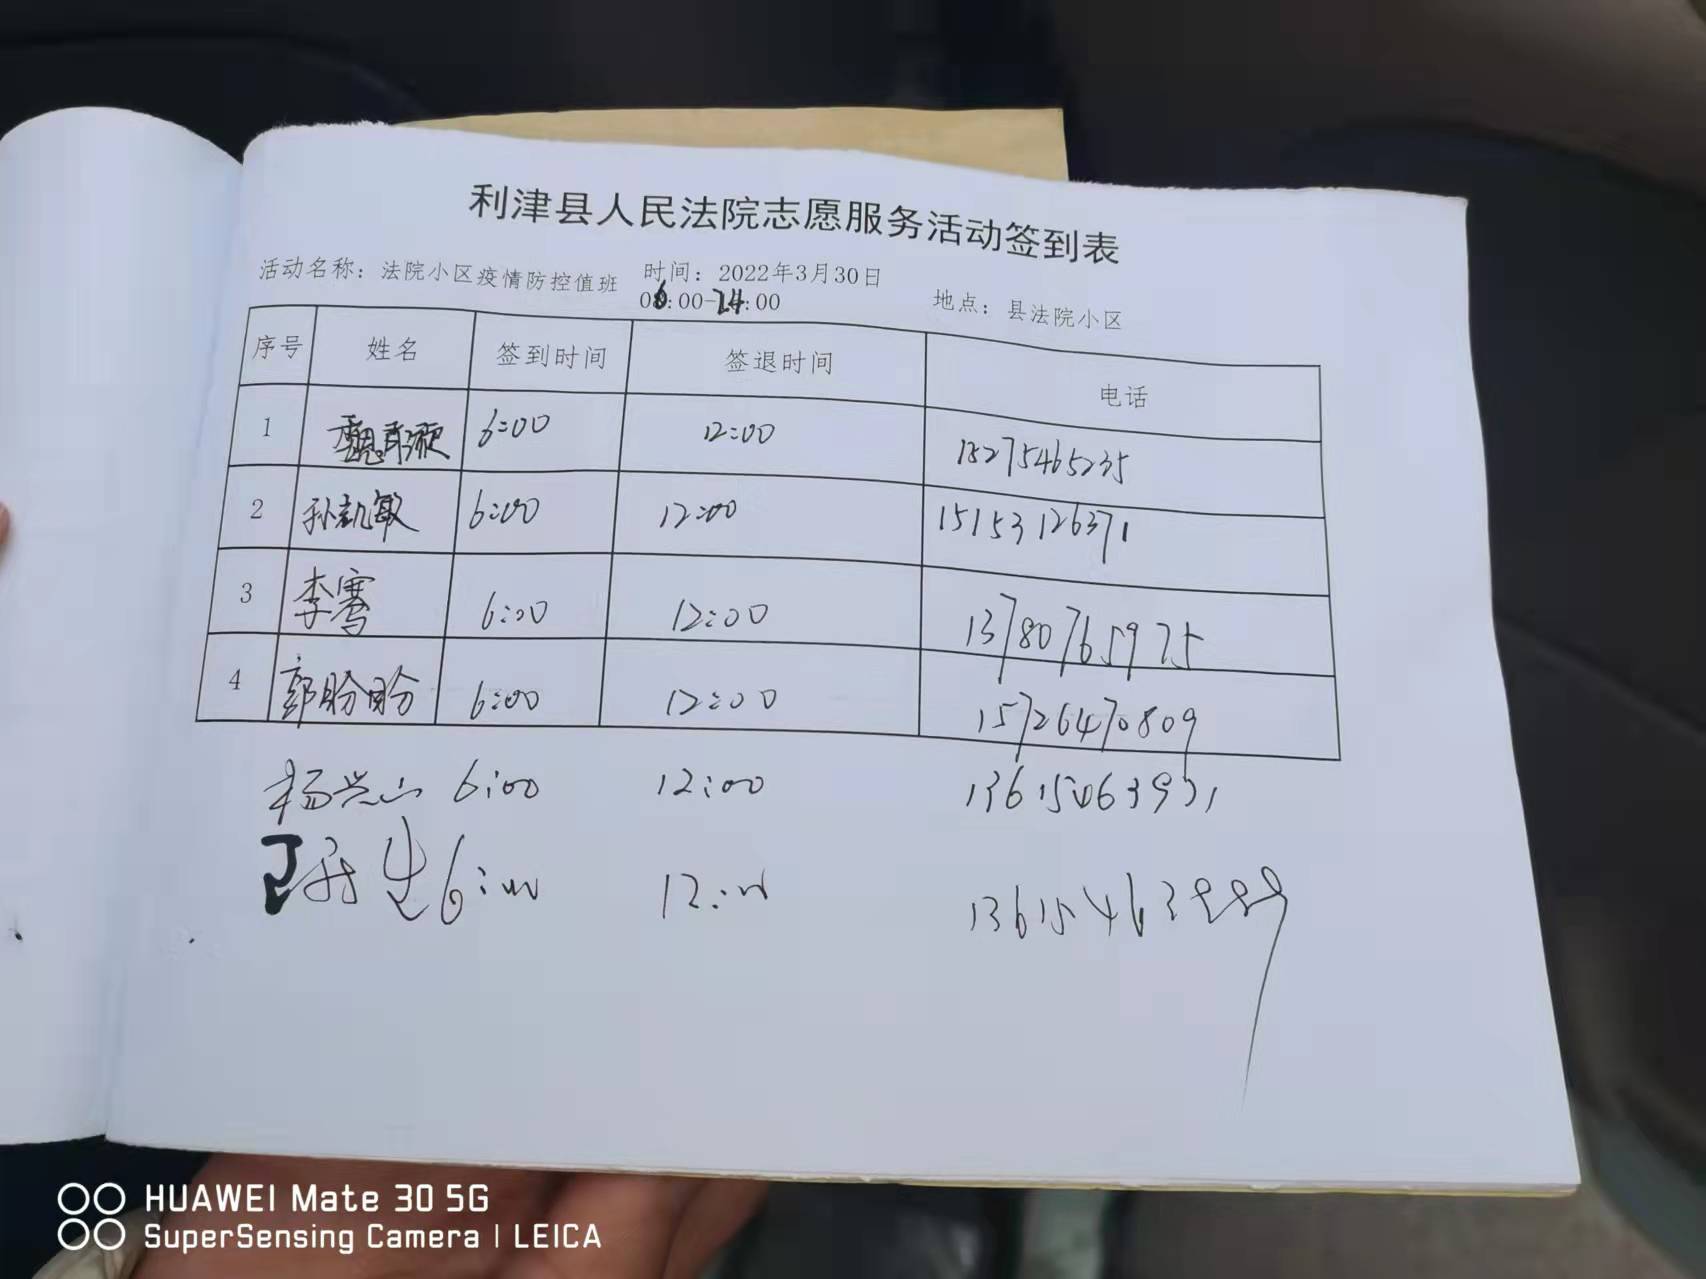 利津县人民法院志愿服务活动签到表
活动名称：法院小区疫情防控值班 时间：2022年3月30日 06:00-24:00 地点：县法院小区
序号 姓名 签到时间 签退时间 电话
1 6:00 12:00 15275465235
2 孙凯敏 6:00 12:00 15153126371
3 李骞 6:00 12:00 13780765975
4 郭盼盼 6:00 12:00 15726470809
杨兴山 6:00 12:00 13615463931
6:00 12:00 13615463999
HUAWEI Mate 30 5G
SuperSensing Camera | LEICA